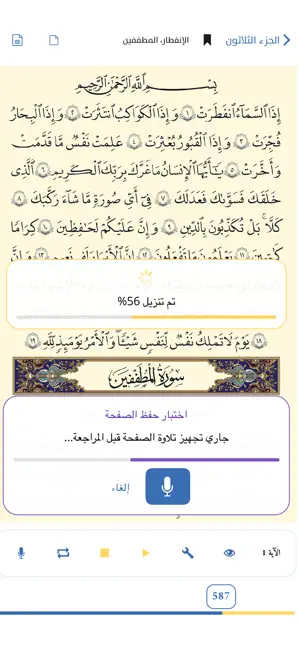 الجزء الثلاثون
الإنفطار، المطففين
بِسْمِ ٱللَّهِ ٱلرَّحْمَٰنِ ٱلرَّحِيمِ
إِذَا ٱلسَّمَآءُ ٱنفَطَرَتْ ١ وَإِذَا ٱلْكَوَاكِبُ ٱنتَثَرَتْ ٢ وَإِذَا ٱلْبِحَارُ
فُجِّرَتْ ٣ وَإِذَا ٱلْقُبُورُ بُعْثِرَتْ ٤ عَلِمَتْ نَفْسٌ مَّا قَدَّمَتْ
وَأَخَّرَتْ ٥ يَٰٓأَيُّهَا ٱلْإِنسَٰنُ مَا غَرَّكَ بِرَبِّكَ ٱلْكَرِيمِ ٦ ٱلَّذِى
خَلَقَكَ فَسَوَّىٰكَ فَعَدَلَكَ ٧ فِىٓ أَىِّ صُورَةٍ مَّا شَآءَ رَكَّبَكَ ٨
كَلَّا بَلْ تُكَذِّبُونَ بِٱلدِّينِ ٩ وَإِنَّ عَلَيْكُمْ لَحَٰفِظِينَ ١٠ كِرَامًا
كَٰتِبِينَ ١١ يَعْلَمُونَ مَا تَفْعَلُونَ ١٢ إِنَّ ٱلْأَبْرَارَ لَفِى نَعِيمٍ ١٣ وَإِنَّ
تم تنزيل 56%
١٨ يَوْمَ لَا تَمْلِكُ نَفْسٌ لِّنَفْسٍ شَيْـًٔا وَٱلْأَمْرُ يَوْمَئِذٍ لِّلَّهِ ١٩
سُورَةُ المُطَفِّفِينَ
اختبار حفظ الصفحة
جاري تجهيز تلاوة الصفحة قبل المراجعة...
إلغاء
الآية 1
587